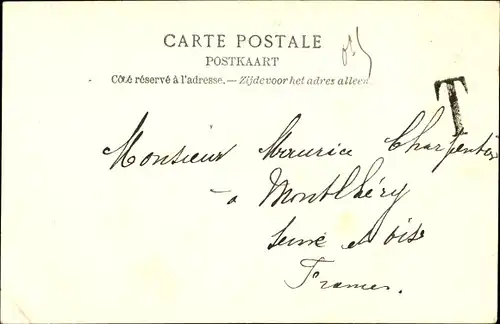 CARTE POSTALE
POSTKAART
Côté réservé à l'adresse. — Zijde voor het adres alleen.
T
Monsieur Maurice Charpentier
à Montlhéry
Seine et Oise
France.